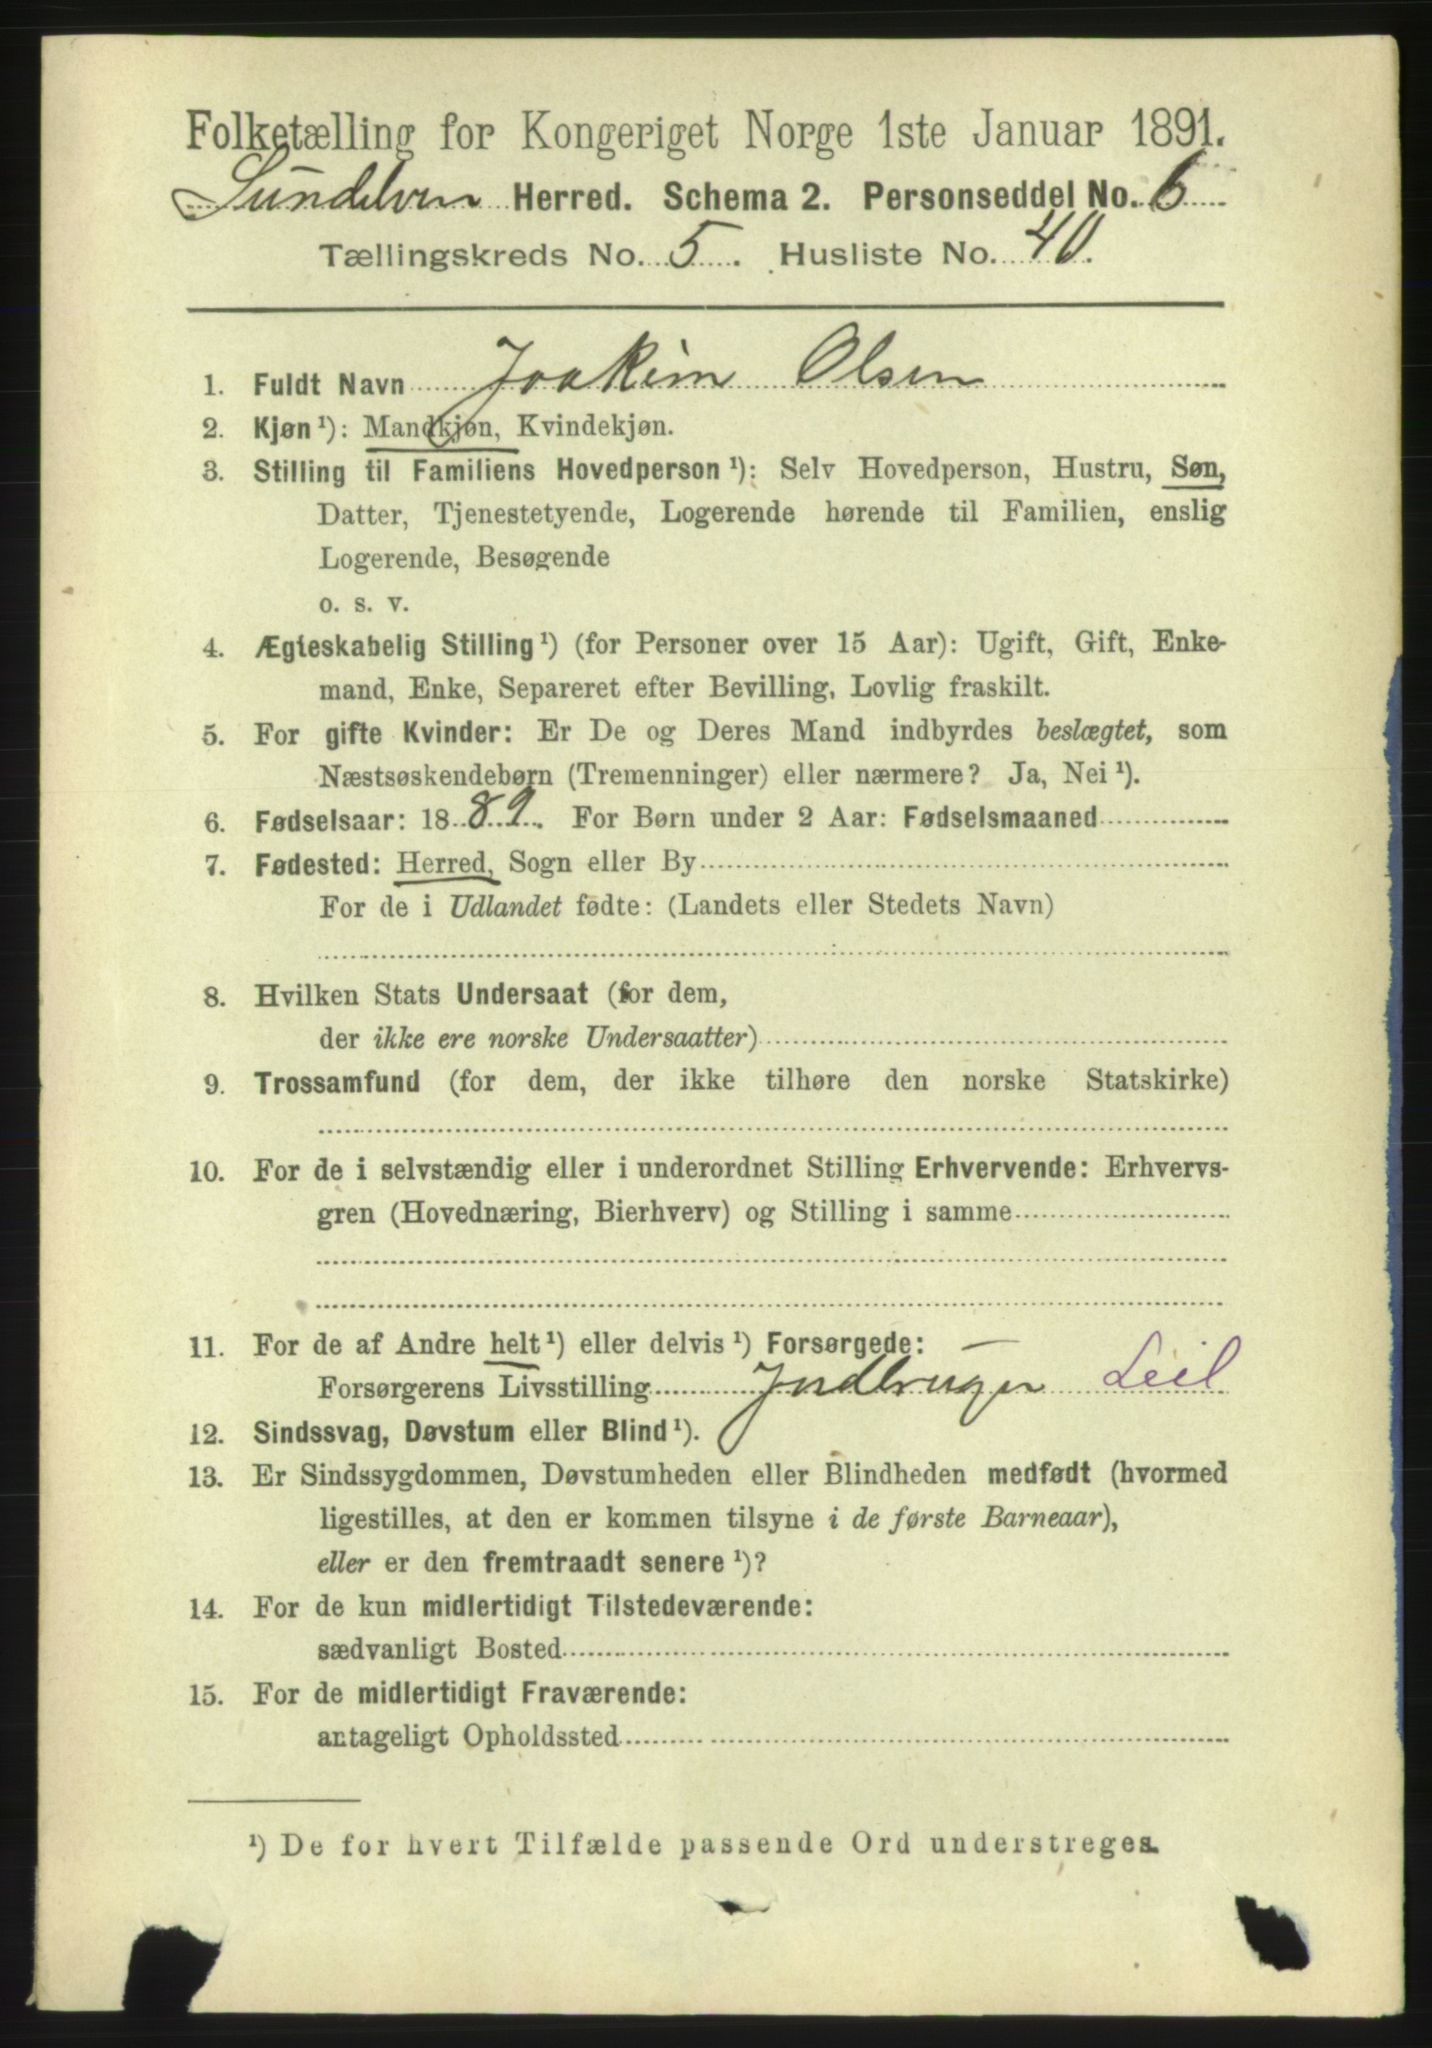 Folketælling for Kongeriget Norge 1ste Januar 1891.
Sundelven Herred. Schema 2. Personseddel No. 6
Tællingskreds No. 5. Husliste No. 40.
1. Fuldt Navn Joakim Olsen
2. Kjøn ¹): Mandkjøn, Kvindekjøn.
3. Stilling til Familiens Hovedperson ¹): Selv Hovedperson, Hustru, Søn,
Datter, Tjenestetyende, Logerende hørende til Familien, enslig
Logerende, Besøgende
o. s. v.
4. Ægteskabelig Stilling ¹) (for Personer over 15 Aar): Ugift, Gift, Enke-
mand, Enke, Separeret efter Bevilling, Lovlig fraskilt.
5. For gifte Kvinder: Er De og Deres Mand indbyrdes beslægtet, som
Næstsøskendebørn (Tremenninger) eller nærmere? Ja, Nei ¹).
6. Fødselsaar: 1889. For Børn under 2 Aar: Fødselsmaaned
7. Fødested: Herred, Sogn eller By
For de i Udlandet fødte: (Landets eller Stedets Navn)
8. Hvilken Stats Undersaat (for dem,
der ikke ere norske Undersaatter)
9. Trossamfund (for dem, der ikke tilhøre den norske Statskirke)
10. For de i selvstændig eller i underordnet Stilling Erhvervende: Erhvervs-
gren (Hovednæring, Bierhverv) og Stilling i samme
11. For de af Andre helt ¹) eller delvis ¹) Forsørgede:
Forsørgerens Livsstilling Jordbruger Leil
12. Sindssvag, Døvstum eller Blind ¹).
13. Er Sindssygdommen, Døvstumheden eller Blindheden medfødt (hvormed
ligestilles, at den er kommen tilsyne i de første Barneaar),
eller er den fremtraadt senere ¹)?
14. For de kun midlertidigt Tilstedeværende:
sædvanligt Bosted
15. For de midlertidigt Fraværende:
antageligt Opholdssted
¹) De for hvert Tilfælde passende Ord understreges.